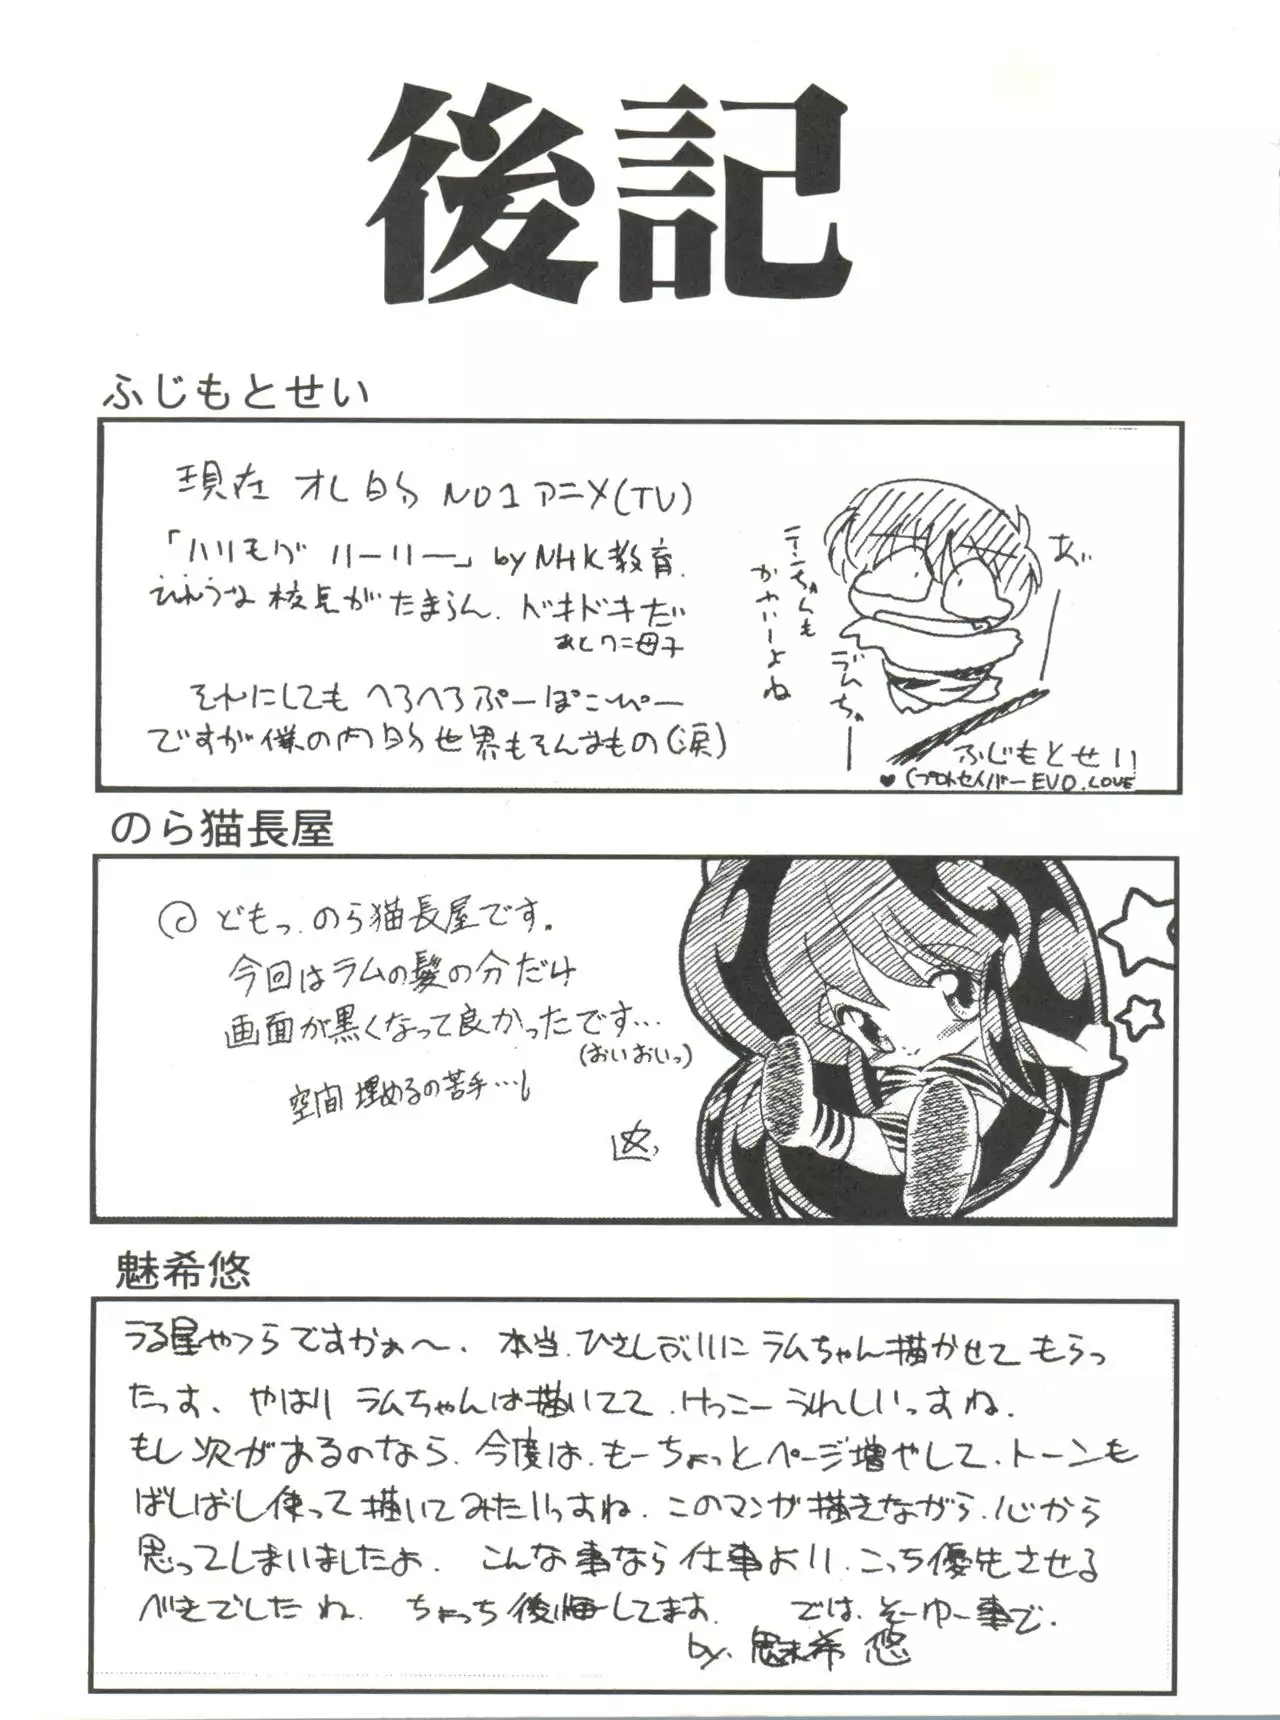 後記
ふじもとせい
現在 オレ的 NO1アニメ(TV)
「ハリモグハーリー」by NHK教育.
びみょうな 校長がたまらん. ドキドキだ
あとワニ母子
それにしても へろへろぷーぽこぴー
ですが 僕の内的世界もそんなもの(涙)
テンちゃんも
かわいーよね
ラムちゃ
ふじもとせい
♥(プロトセイバーEVO. LOVE
のら猫長屋
どもっ. のら猫長屋です。
今回はラムの髪の分だけ
画面が黒くなって良かったです…
(おいおいっ)
空間 埋めるの苦手…
魅希悠
うる星やつらですかぁ〜. 本当. ひさしぶりに ラムちゃん描かせて もらっ
たっす. やはり ラムちゃんは描いてて. けっこー うれしいっすね.
もし次があるのなら. 今度は. もーちょっとページ増やして. トーンも
ばしばし使って 描いてみたいっすね. このマンガ描きながら. 心から
思ってしまいましたよ. こんな事なら 仕事より. こっち優先させる
べきでしたね. ちょっち後悔してます. では. そーゆー事で.
by. 魅希 悠